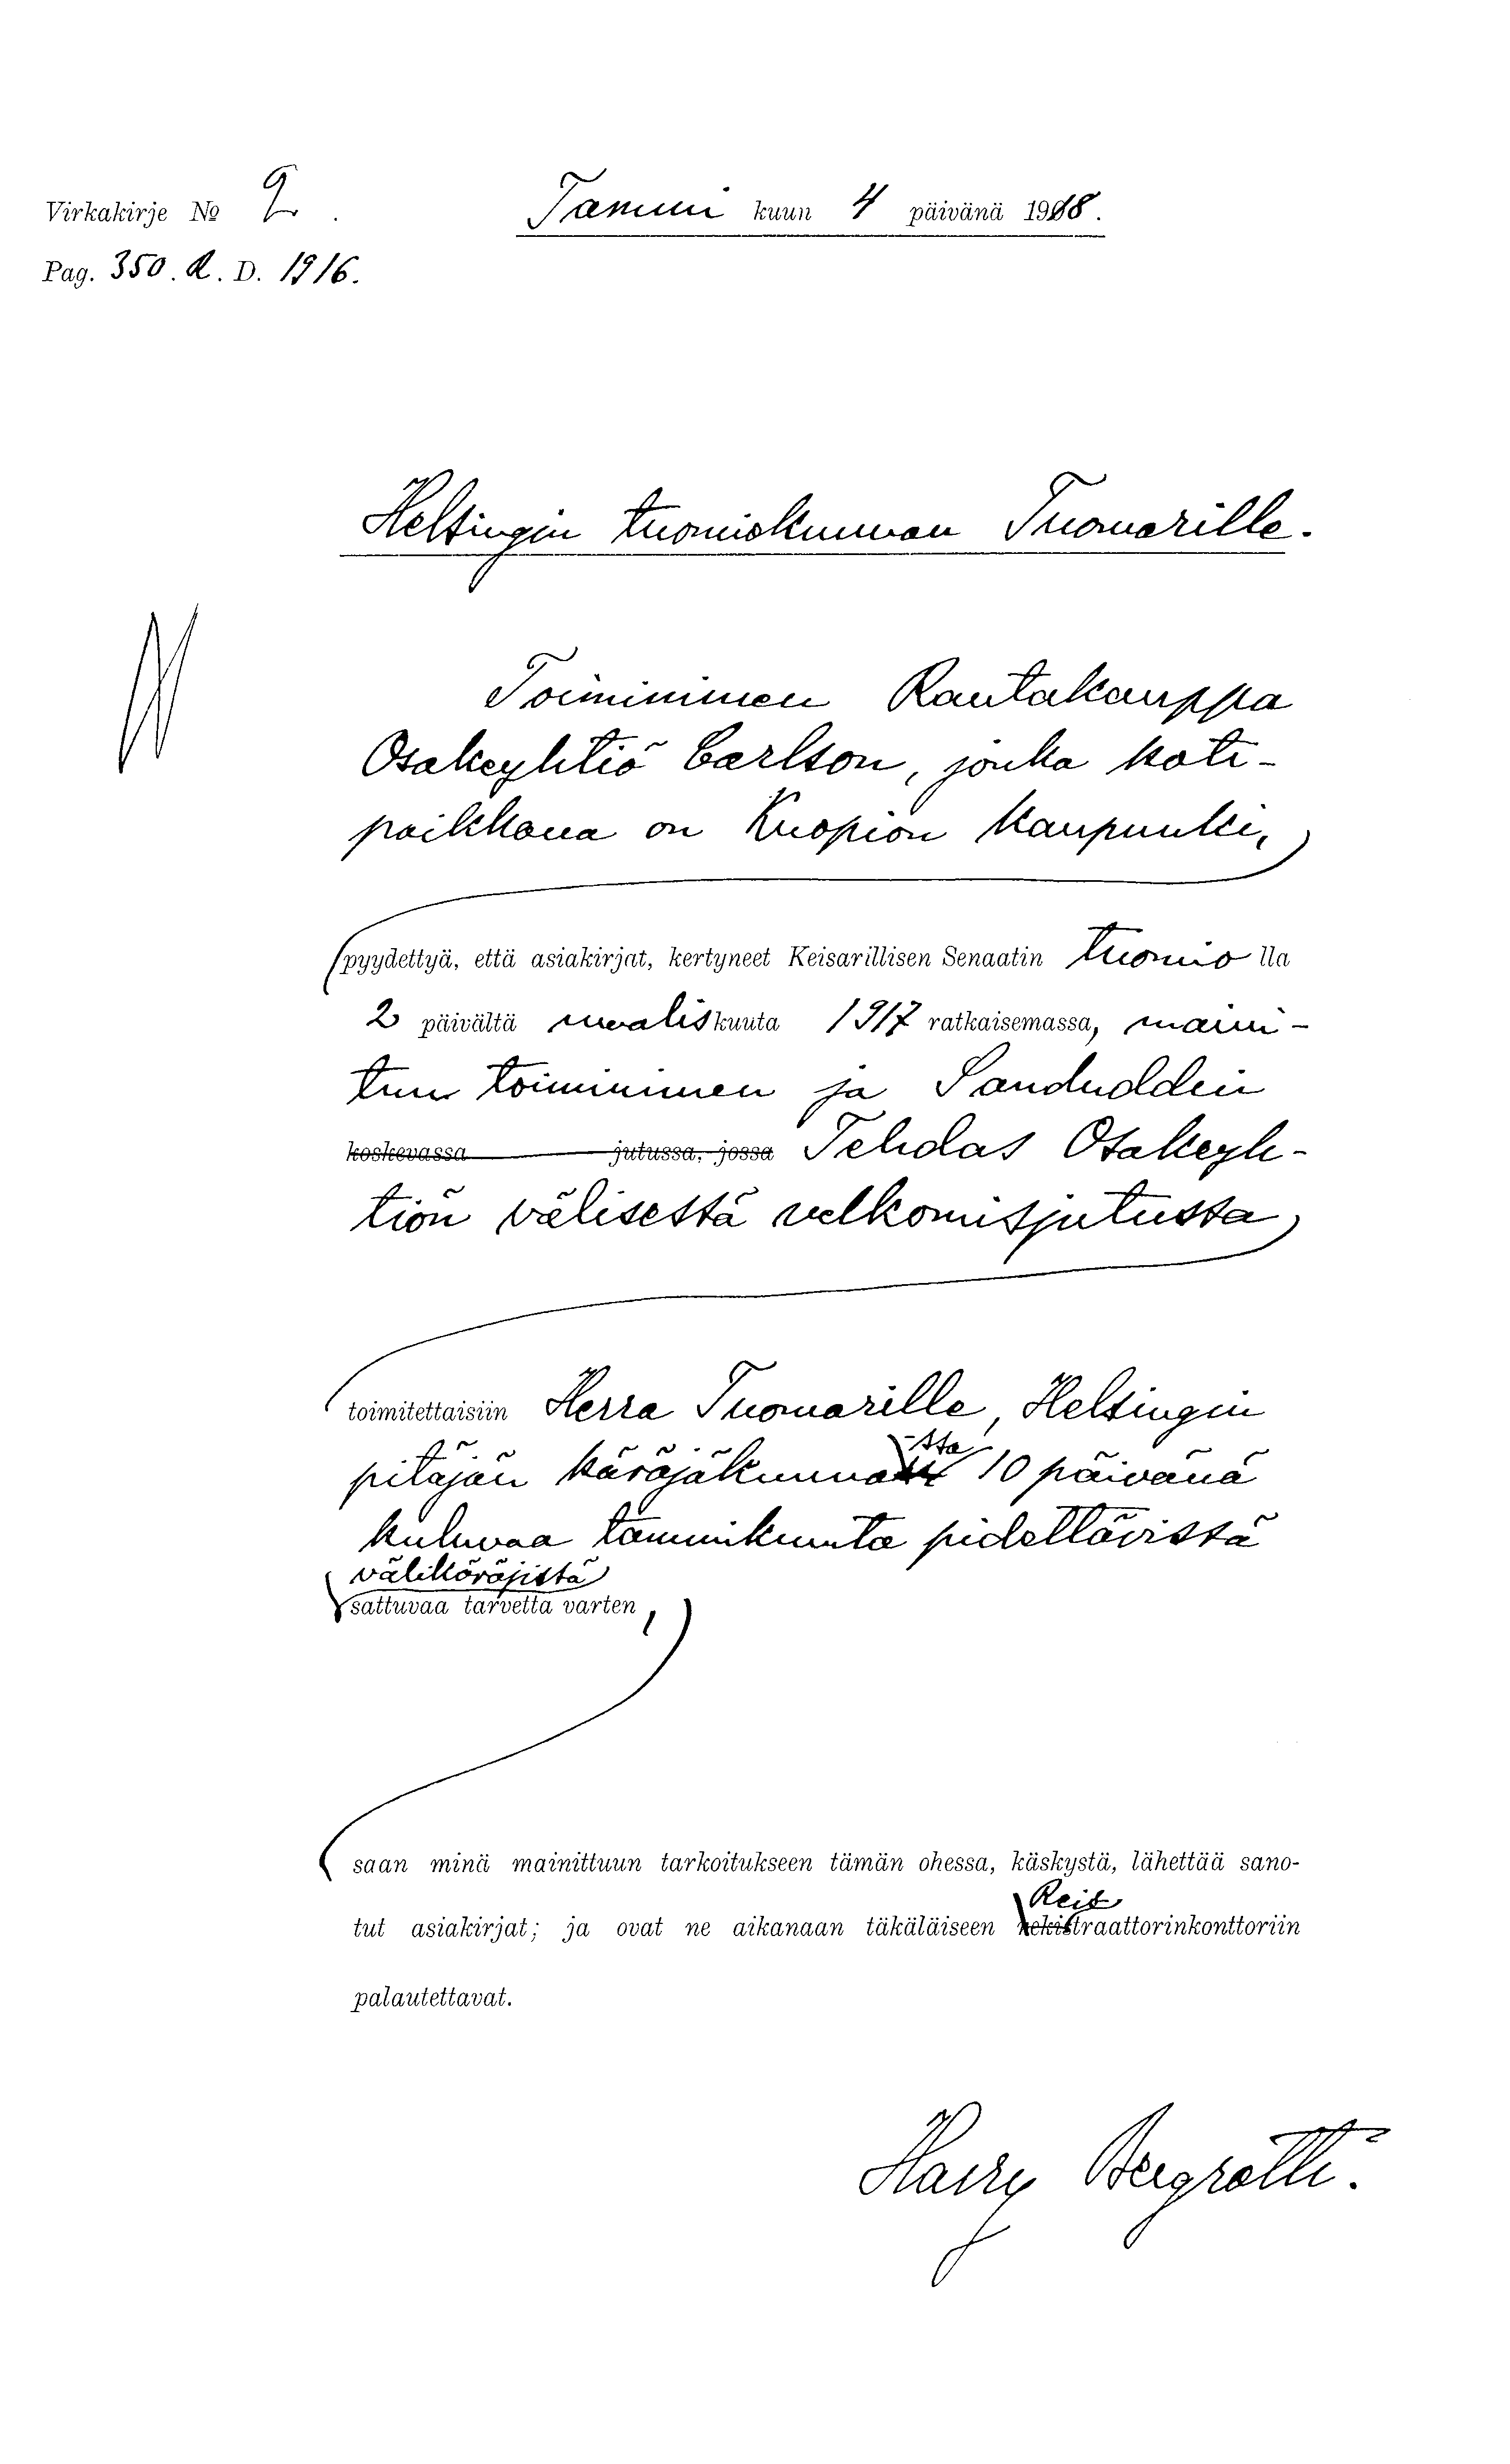 Virkakirje No 2.
Tammi kuun 4 päivänä 1918.
Pag. 350. d. D. 1916.
Helsingin tuomiokunnan Tuomarille.
Toiminimen Rautakauppa
Osakeyhtiö Carlson, jonka koti-
paikkana on Kuopion kaupunki,
pyydettyä, että asiakirjat, kertyneet Keisarillisen Senaatin tuomiolla
2 päivältä maaliskuuta 1917 ratkaisemassa, maini-
tun toiminimen ja Sandudden
koskevassa jutussa, jossa Tehdas Osakeyh-
tiön välisestä velkomisjutussa
toimitettaisiin Herra Tuomarille, Helsingin
-sta
pitäjän käräjäkunnan 10 päivänä
kuluvaa tammikuuta pidettävistä
välikäräjistä
sattuvaa tarvetta varten,
saan minä mainittuun tarkoitukseen tämän ohessa, käskystä, lähettää sano-
Reis
tut asiakirjat; ja ovat ne aikanaan täkäläiseen rekistraattorinkonttoriin
palautettavat.
Harry Bergroth.